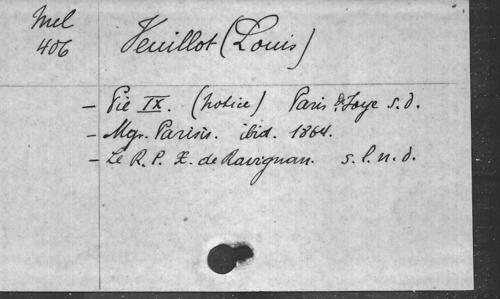 Mel
406
Veuillot (Louis)
- Pie IX. (notice) Paris s. d.
- Mgr. Parisis. ibid. 1864.
- Le R. P. X. de Ravignan. s. l. n. d.